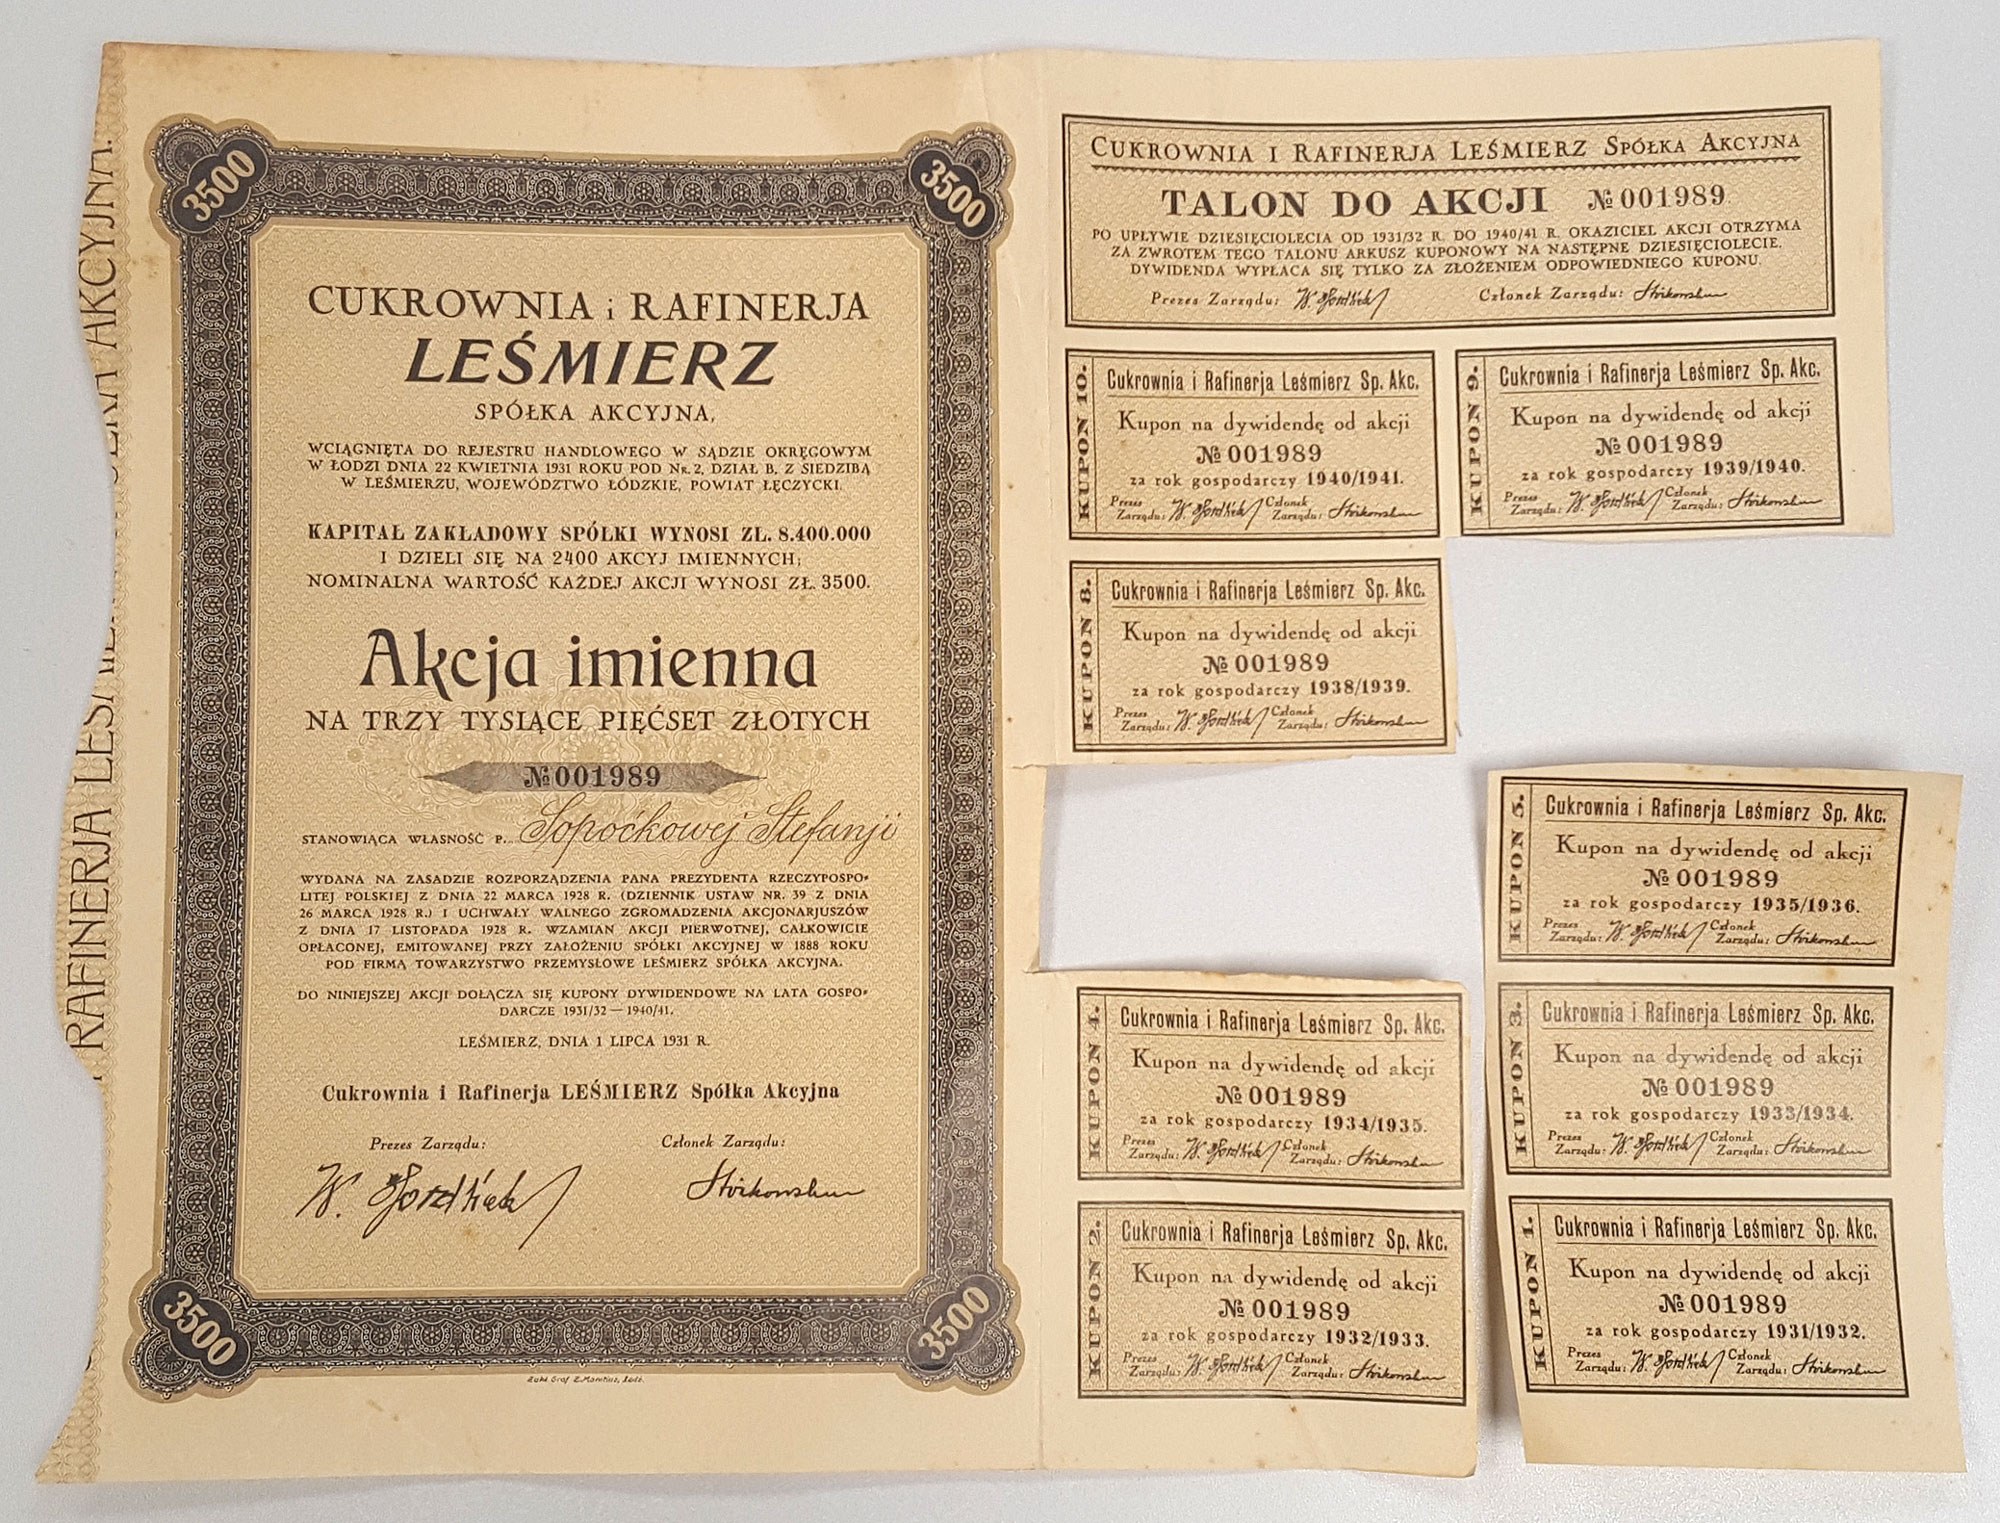 RAFINERJA LEŚMIERZ
AKCYJNA.
3500
3500
CUKROWNIA i RAFINERJA
LEŚMIERZ
SPÓŁKA AKCYJNA,
WCIĄGNIĘTA DO REJESTRU HANDLOWEGO W SĄDZIE OKRĘGOWYM
W ŁODZI DNIA 22 KWIETNIA 1931 ROKU POD Nr. 2, DZIAŁ B, Z SIEDZIBĄ
W LEŚMIERZU, WOJEWÓDZTWO ŁÓDZKIE, POWIAT ŁĘCZYCKI.
KAPITAŁ ZAKŁADOWY SPÓŁKI WYNOSI ZŁ. 8.400.000
I DZIELI SIĘ NA 2400 AKCYJ IMIENNYCH;
NOMINALNA WARTOŚĆ KAŻDEJ AKCJI WYNOSI ZŁ. 3500.
Akcja imienna
NA TRZY TYSIĄCE PIĘĆSET ZŁOTYCH
№ 001989
STANOWIĄCA WŁASNOŚĆ P. Sopoćkowej Stefanji
WYDANA NA ZASADZIE ROZPORZĄDZENIA PANA PREZYDENTA RZECZYPOSPO-
LITEJ POLSKIEJ Z DNIA 22 MARCA 1928 R. (DZIENNIK USTAW NR. 39 Z DNIA
26 MARCA 1928 R.) I UCHWAŁY WALNEGO ZGROMADZENIA AKCJONARJUSZÓW
Z DNIA 17 LISTOPADA 1928 R. WZAMIAN AKCJI PIERWOTNEJ, CAŁKOWICIE
OPŁACONEJ, EMITOWANEJ PRZY ZAŁOŻENIU SPÓŁKI AKCYJNEJ W 1888 ROKU
POD FIRMĄ TOWARZYSTWO PRZEMYSŁOWE LEŚMIERZ SPÓŁKA AKCYJNA.
DO NINIEJSZEJ AKCJI DOŁĄCZA SIĘ KUPONY DYWIDENDOWE NA LATA GOSPO-
DARCZE 1931/32 — 1940/41.
LEŚMIERZ, DNIA 1 LIPCA 1931 R.
Cukrownia i Rafinerja LEŚMIERZ Spółka Akcyjna
Prezes Zarządu: Członek Zarządu:
3500
3500
CUKROWNIA I RAFINERJA LEŚMIERZ SPÓŁKA AKCYJNA
TALON DO AKCJI № 001989
PO UPŁYWIE DZIESIĘCIOLECIA OD 1931/32 R. DO 1940/41 R. OKAZICIEL AKCJI OTRZYMA
ZA ZWROTEM TEGO TALONU ARKUSZ KUPONOWY NA NASTĘPNE DZIESIĘCIOLECIE.
DYWIDENDA WYPŁACA SIĘ TYLKO ZA ZŁOŻENIEM ODPOWIEDNIEGO KUPONU.
Prezes Zarządu: Członek Zarządu:
KUPON 10.
Cukrownia i Rafinerja Leśmierz Sp. Akc.
Kupon na dywidendę od akcji
№ 001989
za rok gospodarczy 1940/1941.
Prezes Zarządu: Członek Zarządu:
KUPON 9.
Cukrownia i Rafinerja Leśmierz Sp. Akc.
Kupon na dywidendę od akcji
№ 001989
za rok gospodarczy 1939/1940.
Prezes Zarządu: Członek Zarządu:
KUPON 8.
Cukrownia i Rafinerja Leśmierz Sp. Akc.
Kupon na dywidendę od akcji
№ 001989
za rok gospodarczy 1938/1939.
Prezes Zarządu: Członek Zarządu:
KUPON 5.
Cukrownia i Rafinerja Leśmierz Sp. Akc.
Kupon na dywidendę od akcji
№ 001989
za rok gospodarczy 1935/1936.
Prezes Zarządu: Członek Zarządu:
KUPON 4.
Cukrownia i Rafinerja Leśmierz Sp. Akc.
Kupon na dywidendę od akcji
№ 001989
za rok gospodarczy 1934/1935.
Prezes Zarządu: Członek Zarządu:
KUPON 3.
Cukrownia i Rafinerja Leśmierz Sp. Akc.
Kupon na dywidendę od akcji
№ 001989
za rok gospodarczy 1933/1934.
Prezes Zarządu: Członek Zarządu:
KUPON 2.
Cukrownia i Rafinerja Leśmierz Sp. Akc.
Kupon na dywidendę od akcji
№ 001989
za rok gospodarczy 1932/1933.
Prezes Zarządu: Członek Zarządu:
KUPON 1.
Cukrownia i Rafinerja Leśmierz Sp. Akc.
Kupon na dywidendę od akcji
№ 001989
za rok gospodarczy 1931/1932.
Prezes Zarządu: Członek Zarządu: